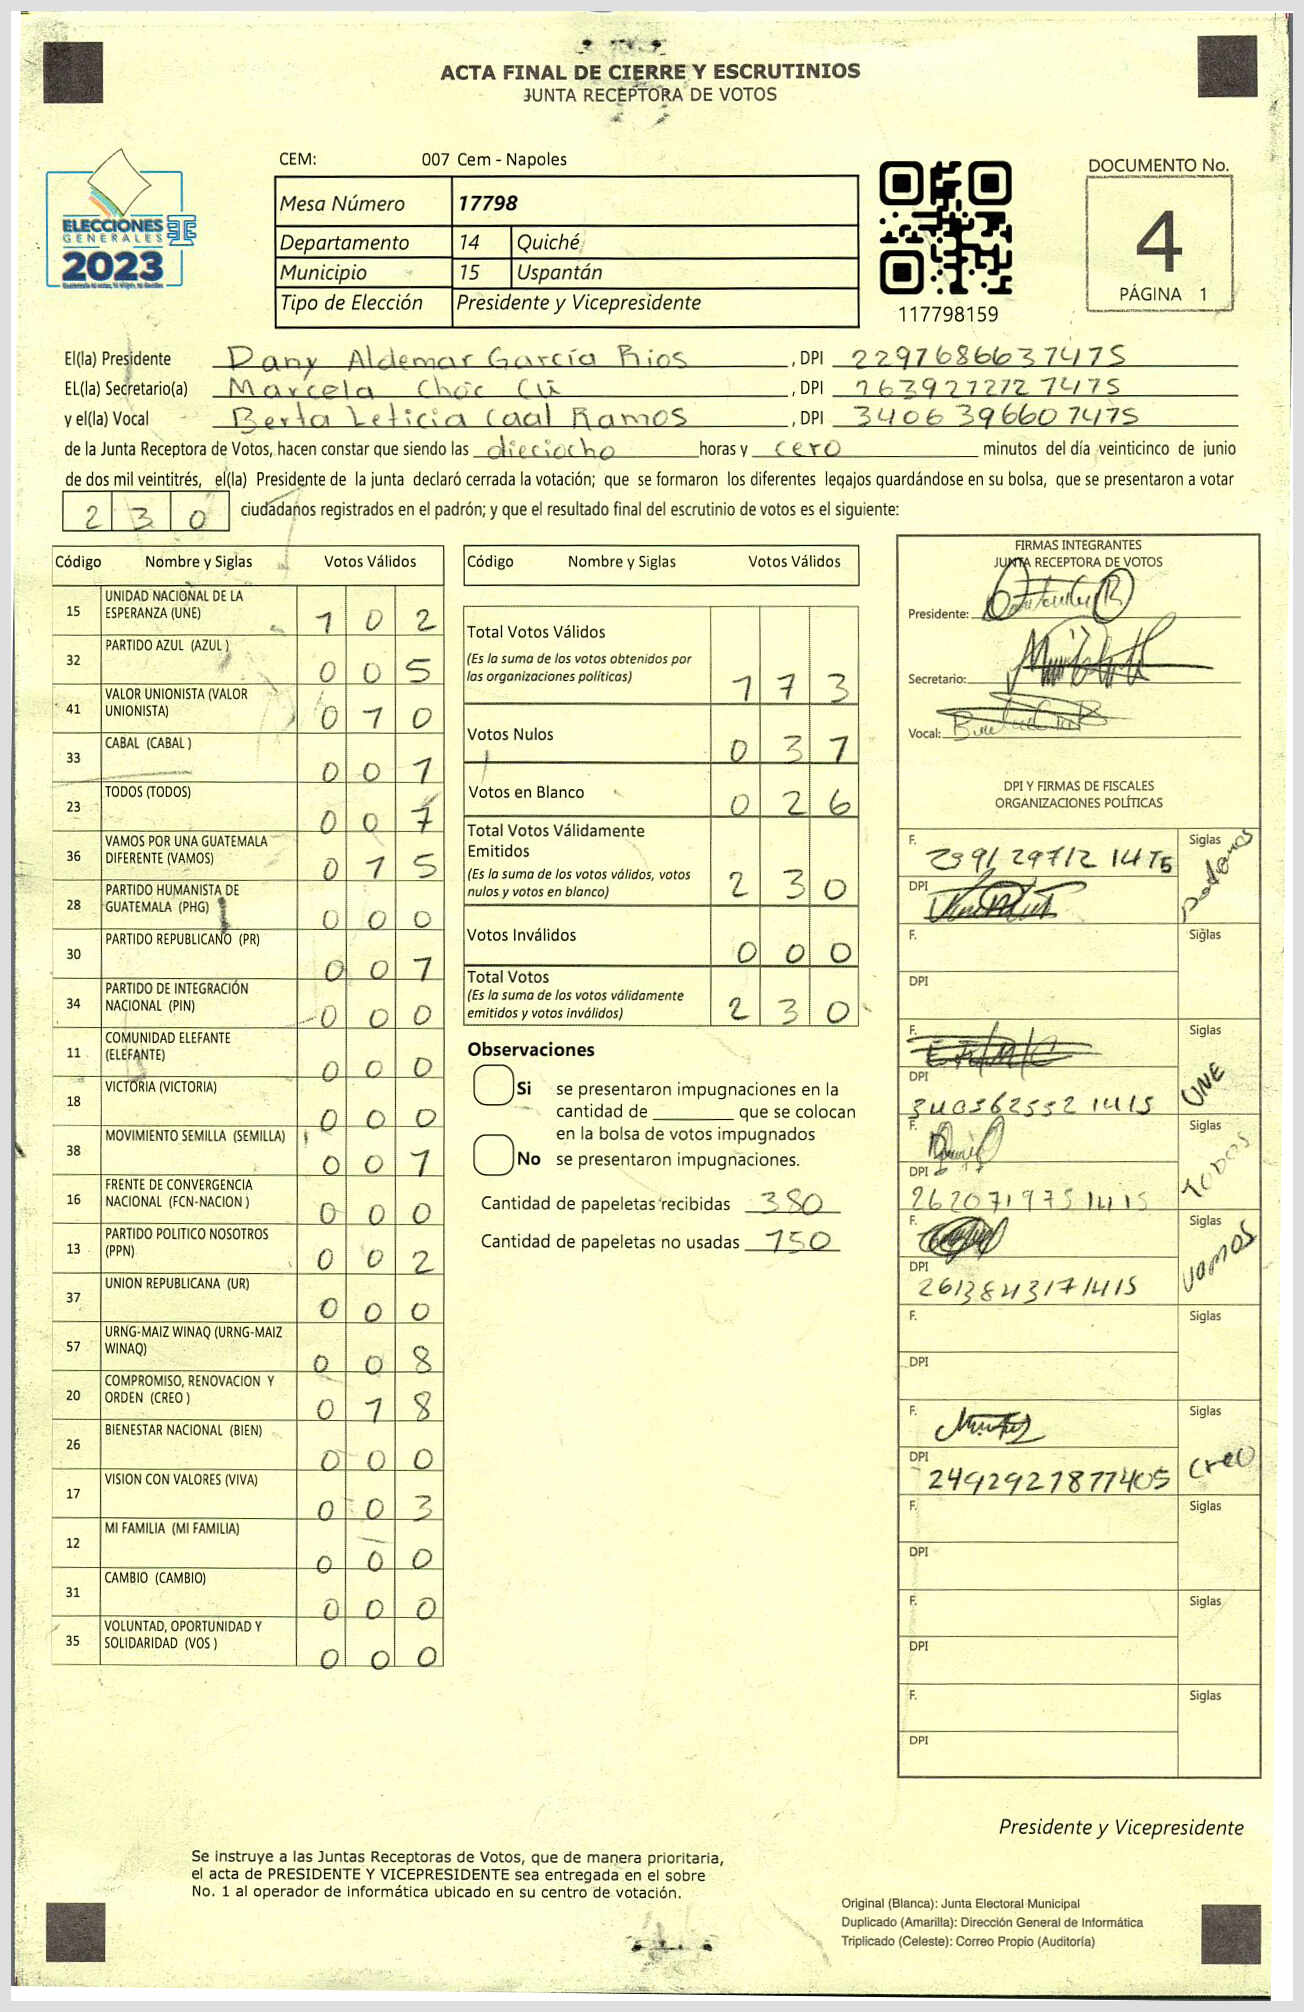 ACTA FINAL DE CIERRE Y ESCRUTINIOS
JUNTA RECEPTORA DE VOTOS
CEM: 007 Cem - Napoles
Mesa Número 17798
Departamento 14 Quiché
Municipio 15 Uspantán
Tipo de Elección Presidente y Vicepresidente
ELECCIONES
GENERALES
2023
117798159
DOCUMENTO No.
4
PÁGINA 1
El(la) Presidente Dany Aldemar García Rios, DPI 2297686637475
EL(la) Secretario(a) Marcela Choc Cü, DPI 1639272727475
y el(la) Vocal Berta Leticia Caal Ramos, DPI 3406396607475
de la Junta Receptora de Votos, hacen constar que siendo las dieciocho horas y cero minutos del día veinticinco de junio
de dos mil veintitrés, el(la) Presidente de la junta declaró cerrada la votación; que se formaron los diferentes legajos guardándose en su bolsa, que se presentaron a votar
230 ciudadanos registrados en el padrón; y que el resultado final del escrutinio de votos es el siguiente:
Código Nombre y Siglas Votos Válidos
15 UNIDAD NACIONAL DE LA ESPERANZA (UNE) 102
32 PARTIDO AZUL (AZUL ) 005
41 VALOR UNIONISTA (VALOR UNIONISTA) 010
33 CABAL (CABAL ) 001
23 TODOS (TODOS) 007
36 VAMOS POR UNA GUATEMALA DIFERENTE (VAMOS) 015
28 PARTIDO HUMANISTA DE GUATEMALA (PHG) 000
30 PARTIDO REPUBLICANO (PR) 001
34 PARTIDO DE INTEGRACIÓN NACIONAL (PIN) 000
11 COMUNIDAD ELEFANTE (ELEFANTE) 000
18 VICTORIA (VICTORIA) 000
38 MOVIMIENTO SEMILLA (SEMILLA) 001
16 FRENTE DE CONVERGENCIA NACIONAL (FCN-NACION ) 000
13 PARTIDO POLITICO NOSOTROS (PPN) 002
37 UNION REPUBLICANA (UR) 000
57 URNG-MAIZ WINAQ (URNG-MAIZ WINAQ) 008
20 COMPROMISO, RENOVACION Y ORDEN (CREO ) 018
26 BIENESTAR NACIONAL (BIEN) 000
17 VISION CON VALORES (VIVA) 003
12 MI FAMILIA (MI FAMILIA) 000
31 CAMBIO (CAMBIO) 000
35 VOLUNTAD, OPORTUNIDAD Y SOLIDARIDAD (VOS ) 000
Código Nombre y Siglas Votos Válidos
Total Votos Válidos
(Es la suma de los votos obtenidos por
las organizaciones políticas) 173
Votos Nulos 031
Votos en Blanco 026
Total Votos Válidamente
Emitidos
(Es la suma de los votos válidos, votos
nulos y votos en blanco) 230
Votos Inválidos 000
Total Votos
(Es la suma de los votos válidamente
emitidos y votos inválidos) 230
Observaciones
Si se presentaron impugnaciones en la
cantidad de ________ que se colocan
en la bolsa de votos impugnados
No se presentaron impugnaciones.
Cantidad de papeletas recibidas 380
Cantidad de papeletas no usadas 150
FIRMAS INTEGRANTES
JUNTA RECEPTORA DE VOTOS
Presidente:
Secretario:
Vocal:
DPI Y FIRMAS DE FISCALES
ORGANIZACIONES POLÍTICAS
F. Siglas
DPI
F. Siglas
DPI
F. Siglas UNE
DPI 3403625521415
F. Siglas TODOS
DPI 2620719751415
F. Siglas vamos
DPI 2613843171415
F. Siglas
DPI
F. Siglas creo
DPI 2492927877405
F. Siglas
DPI
F. Siglas
DPI
F. Siglas
DPI
Presidente y Vicepresidente
Se instruye a las Juntas Receptoras de Votos, que de manera prioritaria,
el acta de PRESIDENTE Y VICEPRESIDENTE sea entregada en el sobre
No. 1 al operador de informática ubicado en su centro de votación.
Original (Blanca): Junta Electoral Municipal
Duplicado (Amarilla): Dirección General de Informática
Triplicado (Celeste): Correo Propio (Auditoría)